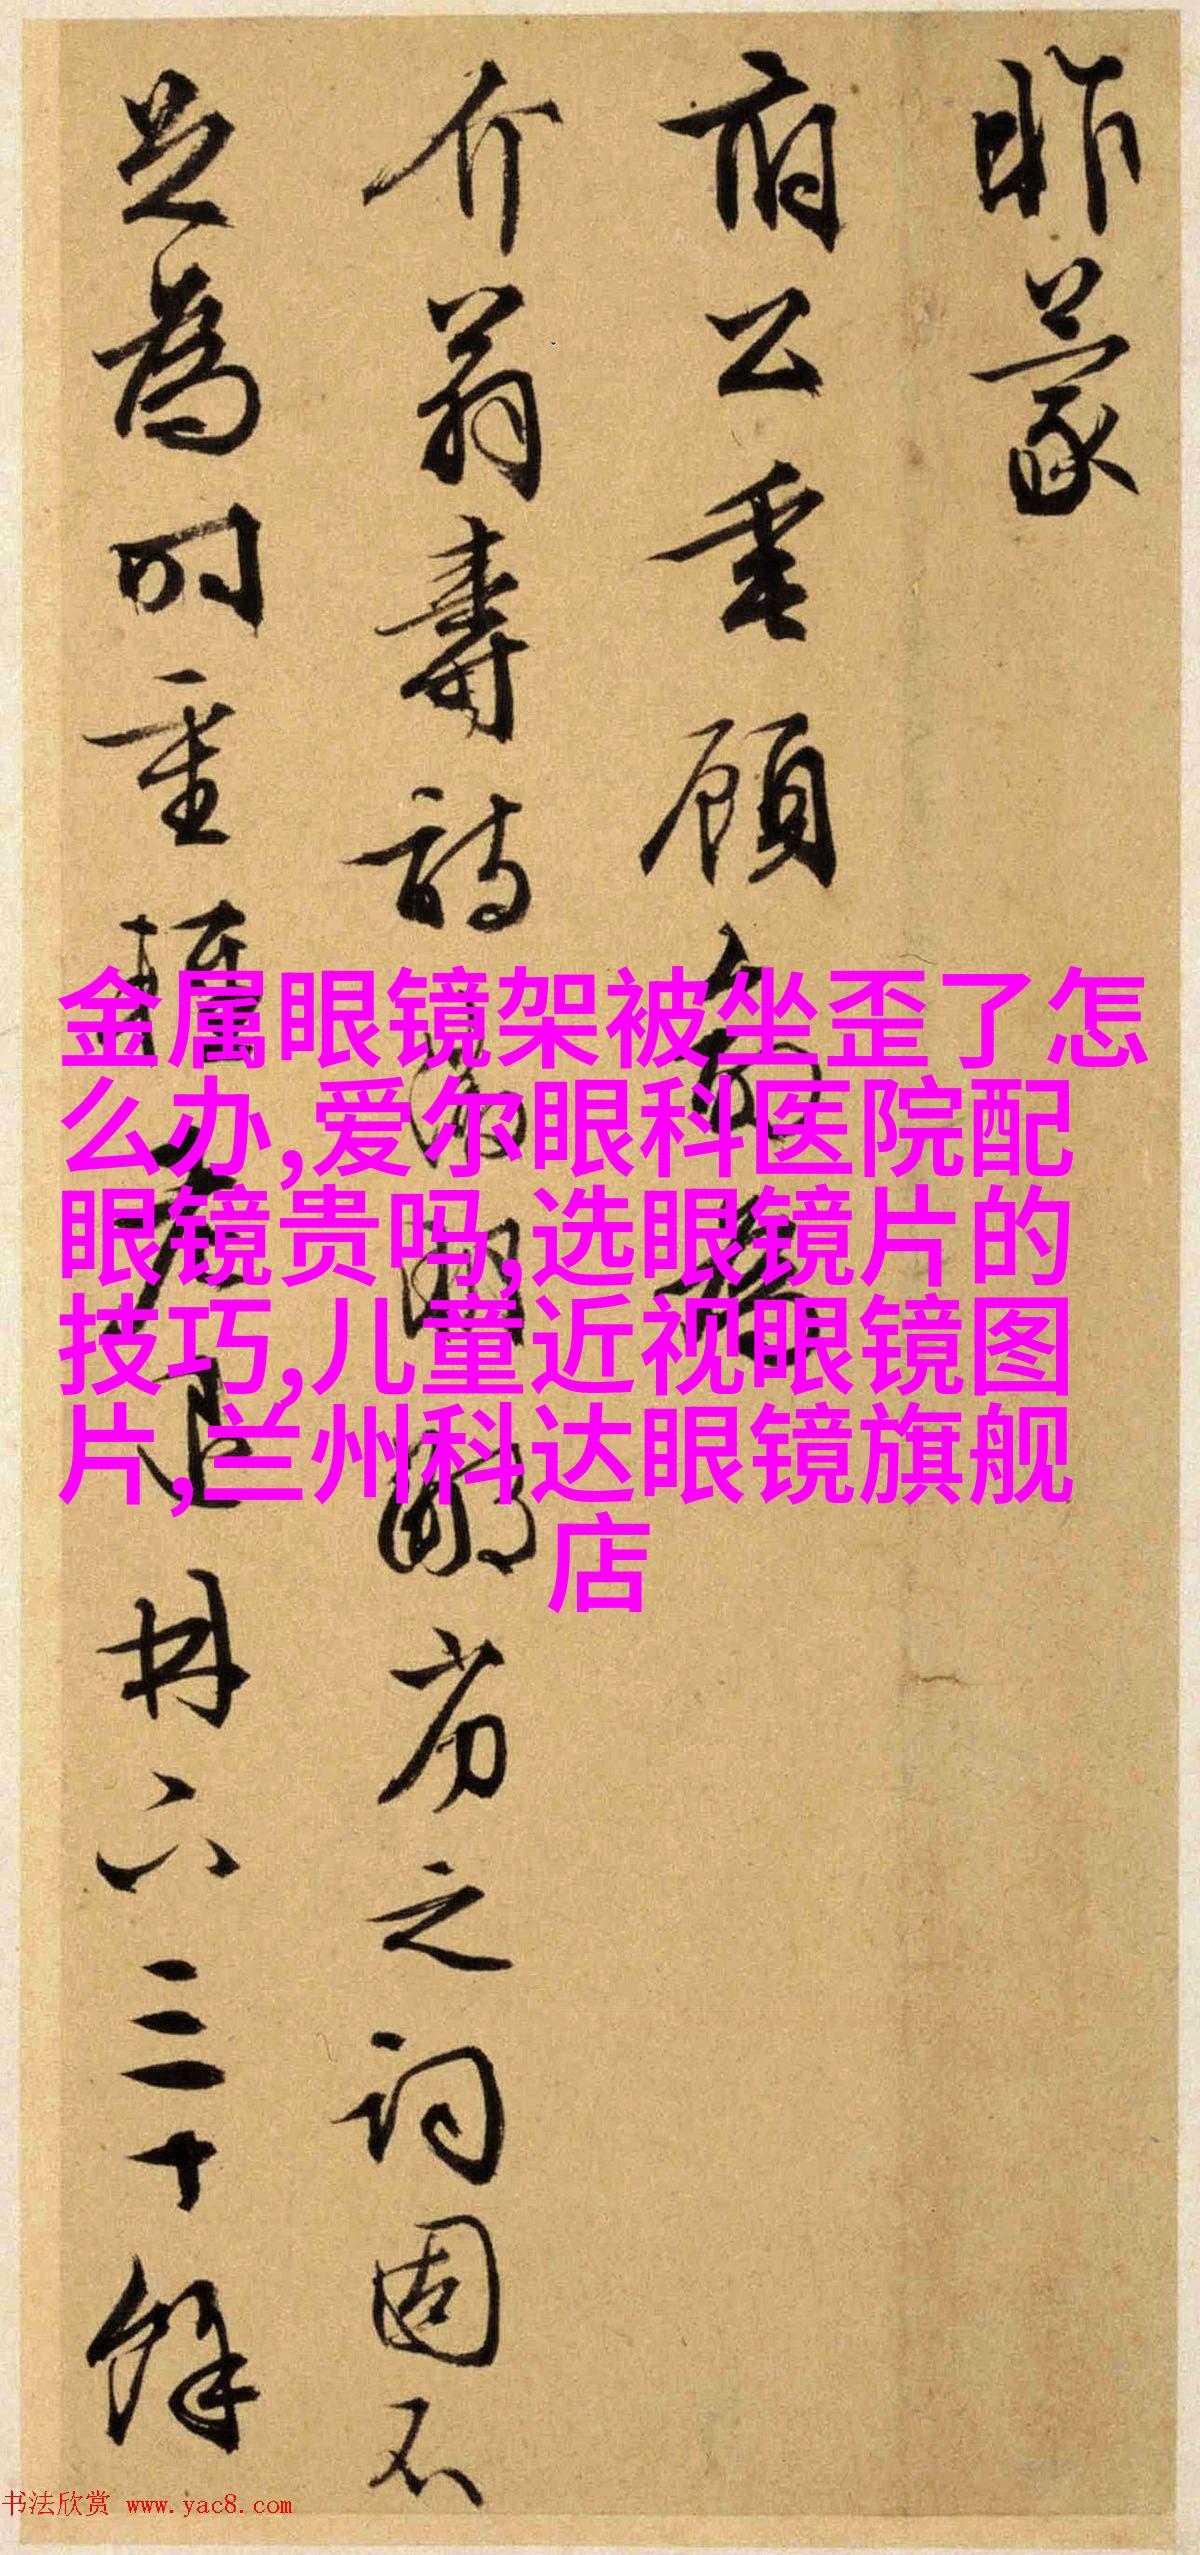 昨蒙
府公垂顾
介翁寿诗
劳之词固不
足为时重
册六三十余
金属眼镜架被坐歪了怎
么办,爱尔眼科医院配
眼镜贵吗,选眼镜片的
技巧,儿童近视眼镜图
片,兰州科达眼镜旗舰
店
书法欣赏 www.yac8.com